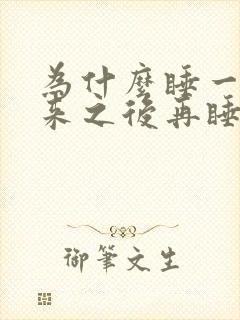 為什麼睡一
來之後再睡
御筆文生